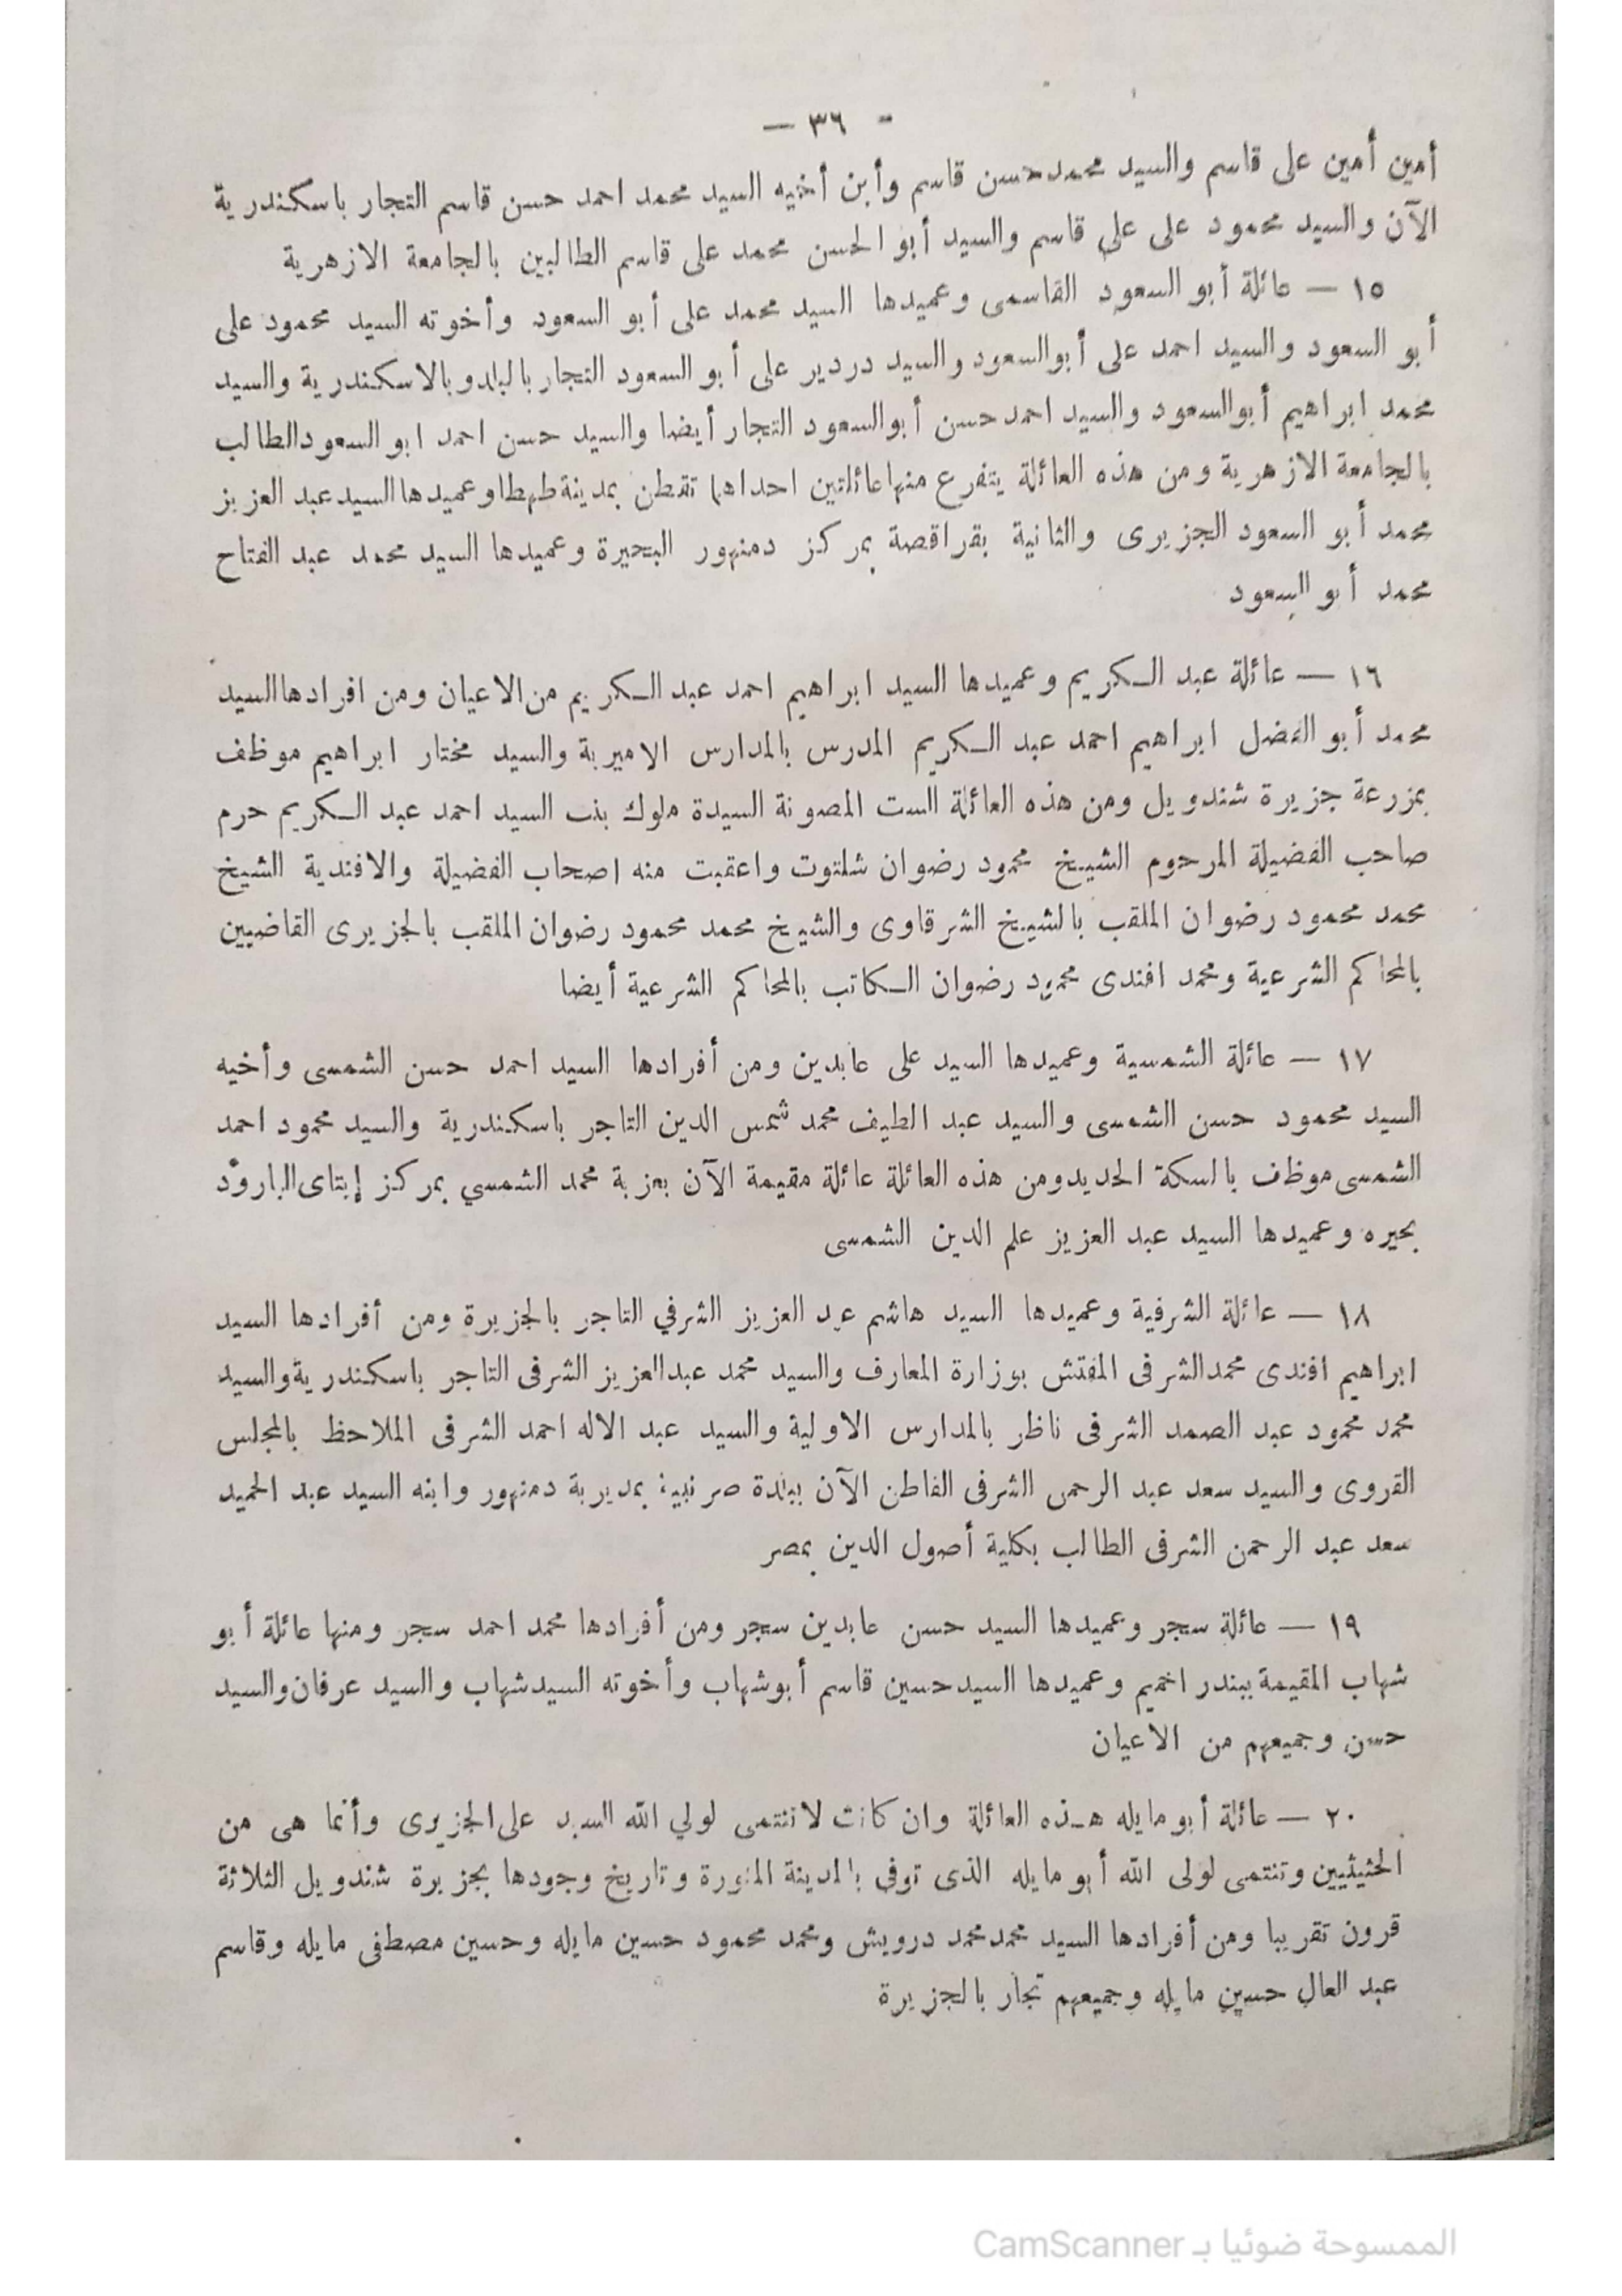 - ٣٦ —
أمين أمين على قاسم والسيد محمد حسن قاسم وأبن أخيه السيد محمد احمد حسن قاسم التجار باسكندرية
الآن والسيد محمود على على قاسم والسيد أبو الحسن محمد على قاسم الطالبين بالجامعة الازهرية
١٥ — عائلة أبو السعود القاسمى وعميدها السيد محمد على أبو السعود وأخوته السيد محمود على
أبو السعود والسيد احمد على أبوالسعود والسيد دردير على أبو السعود التجار بالبلدوبالاسكندرية والسيد
محمد ابراهيم أبوالسعود والسيد احمد حسن أبوالسعود التجار أيضا والسيد حسن احمد ابو السعودالطالب
بالجامعة الازهرية ومن هذه العائلة يتفرع منهاعائلتين احداهما تقطن بمدينةطهطاوعميدهاالسيدعبد العزيز
محمد أبو السعود الجزيرى والثانية بقراقصة بمركز دمنهور البحيرة وعميدها السيد محمد عبد الفتاح
محمد أبو السعود
١٦ — عائلة عبد الكريم وعميدها السيد ابراهيم احمد عبد الكريم من الاعيان ومن افرادهاالسيد
محمد أبو الفضل ابراهيم احمد عبد الكريم المدرس بالمدارس الاميرية والسيد مختار ابراهيم موظف
بمزرعة جزيرة شندويل ومن هذه العائلة الست المصونة السيدة ملوك بنت السيد احمد عبد الكريم حرم
صاحب الفضيلة المرحوم الشيخ محمود رضوان شلتوت واعقبت منه اصحاب الفضيلة والافندية الشيخ
محمد محمود رضوان الملقب بالشيخ الشرقاوى والشيخ محمد محمود رضوان الملقب بالجزيرى القاضيين
بالمحاكم الشرعية ومحمد افندى محمود رضوان الكاتب بالمحاكم الشرعية أيضا
١٧ — عائلة الشمسية وعميدها السيد على عابدين ومن أفرادها السيد احمد حسن الشمسى وأخيه
السيد محمود حسن الشمسى والسيد عبد الطيف محمد شمس الدين التاجر باسكندرية والسيد محمود احمد
الشمسى موظف بالسكة الحديدومن هذه العائلة عائلة مقيمة الآن بعزبة محمد الشمسي بمركز إيتاى البارود
بحيره وعميدها السيد عبد العزيز علم الدين الشمسى
١٨ — عائلة الشرفية وعميدها السيد هاشم عبد العزيز الشرفي التاجر بالجزيرة ومن أفرادها السيد
ابراهيم افندى محمدالشرفى المفتش بوزارة المعارف والسيد محمد عبدالعزيز الشرفى التاجر باسكندريةوالسيد
محمد محمود عبد الصمد الشرفى ناظر بالمدارس الاولية والسيد عبد الاله احمد الشرفى الملاحظ بالمجلس
القروى والسيد سعد عبد الرحمن الشرفى القاطن الآن ببلدة بمديرية دمنهور وابنه السيد عبد الحميد
سعد عبد الرحمن الشرفى الطالب بكلية أصول الدين بمصر
١٩ — عائلة سجر وعميدها السيد حسن عابدين سجر ومن أفرادها محمد احمد سجر ومنها عائلة أبو
شهاب المقيمة ببندر اخميم وعميدها السيدحسين قاسم أبوشهاب وأخوته السيدشهاب والسيد عرفان والسيد
حسن وجميعهم من الاعيان
٢٠ — عائلة أبو مايله هذه العائلة وان كانت لاتنتمى لولي الله السيد على الجزيرى وأنما هى من
الحثيثيين وتنتمى لولى الله أبو مايله الذى توفى بالمدينة المنورة وتاريخ وجودها بجزيرة شندويل الثلاثة
قرون تقريبا ومن أفرادها السيد محمدمحمد درويش ومحمد محمود حسين مايله وحسين مصطفى مايله وقاسم
عبد العال حسين مايله وجميعهم تجار بالجزيرة
الممسوحة ضوئيا بـ CamScanner